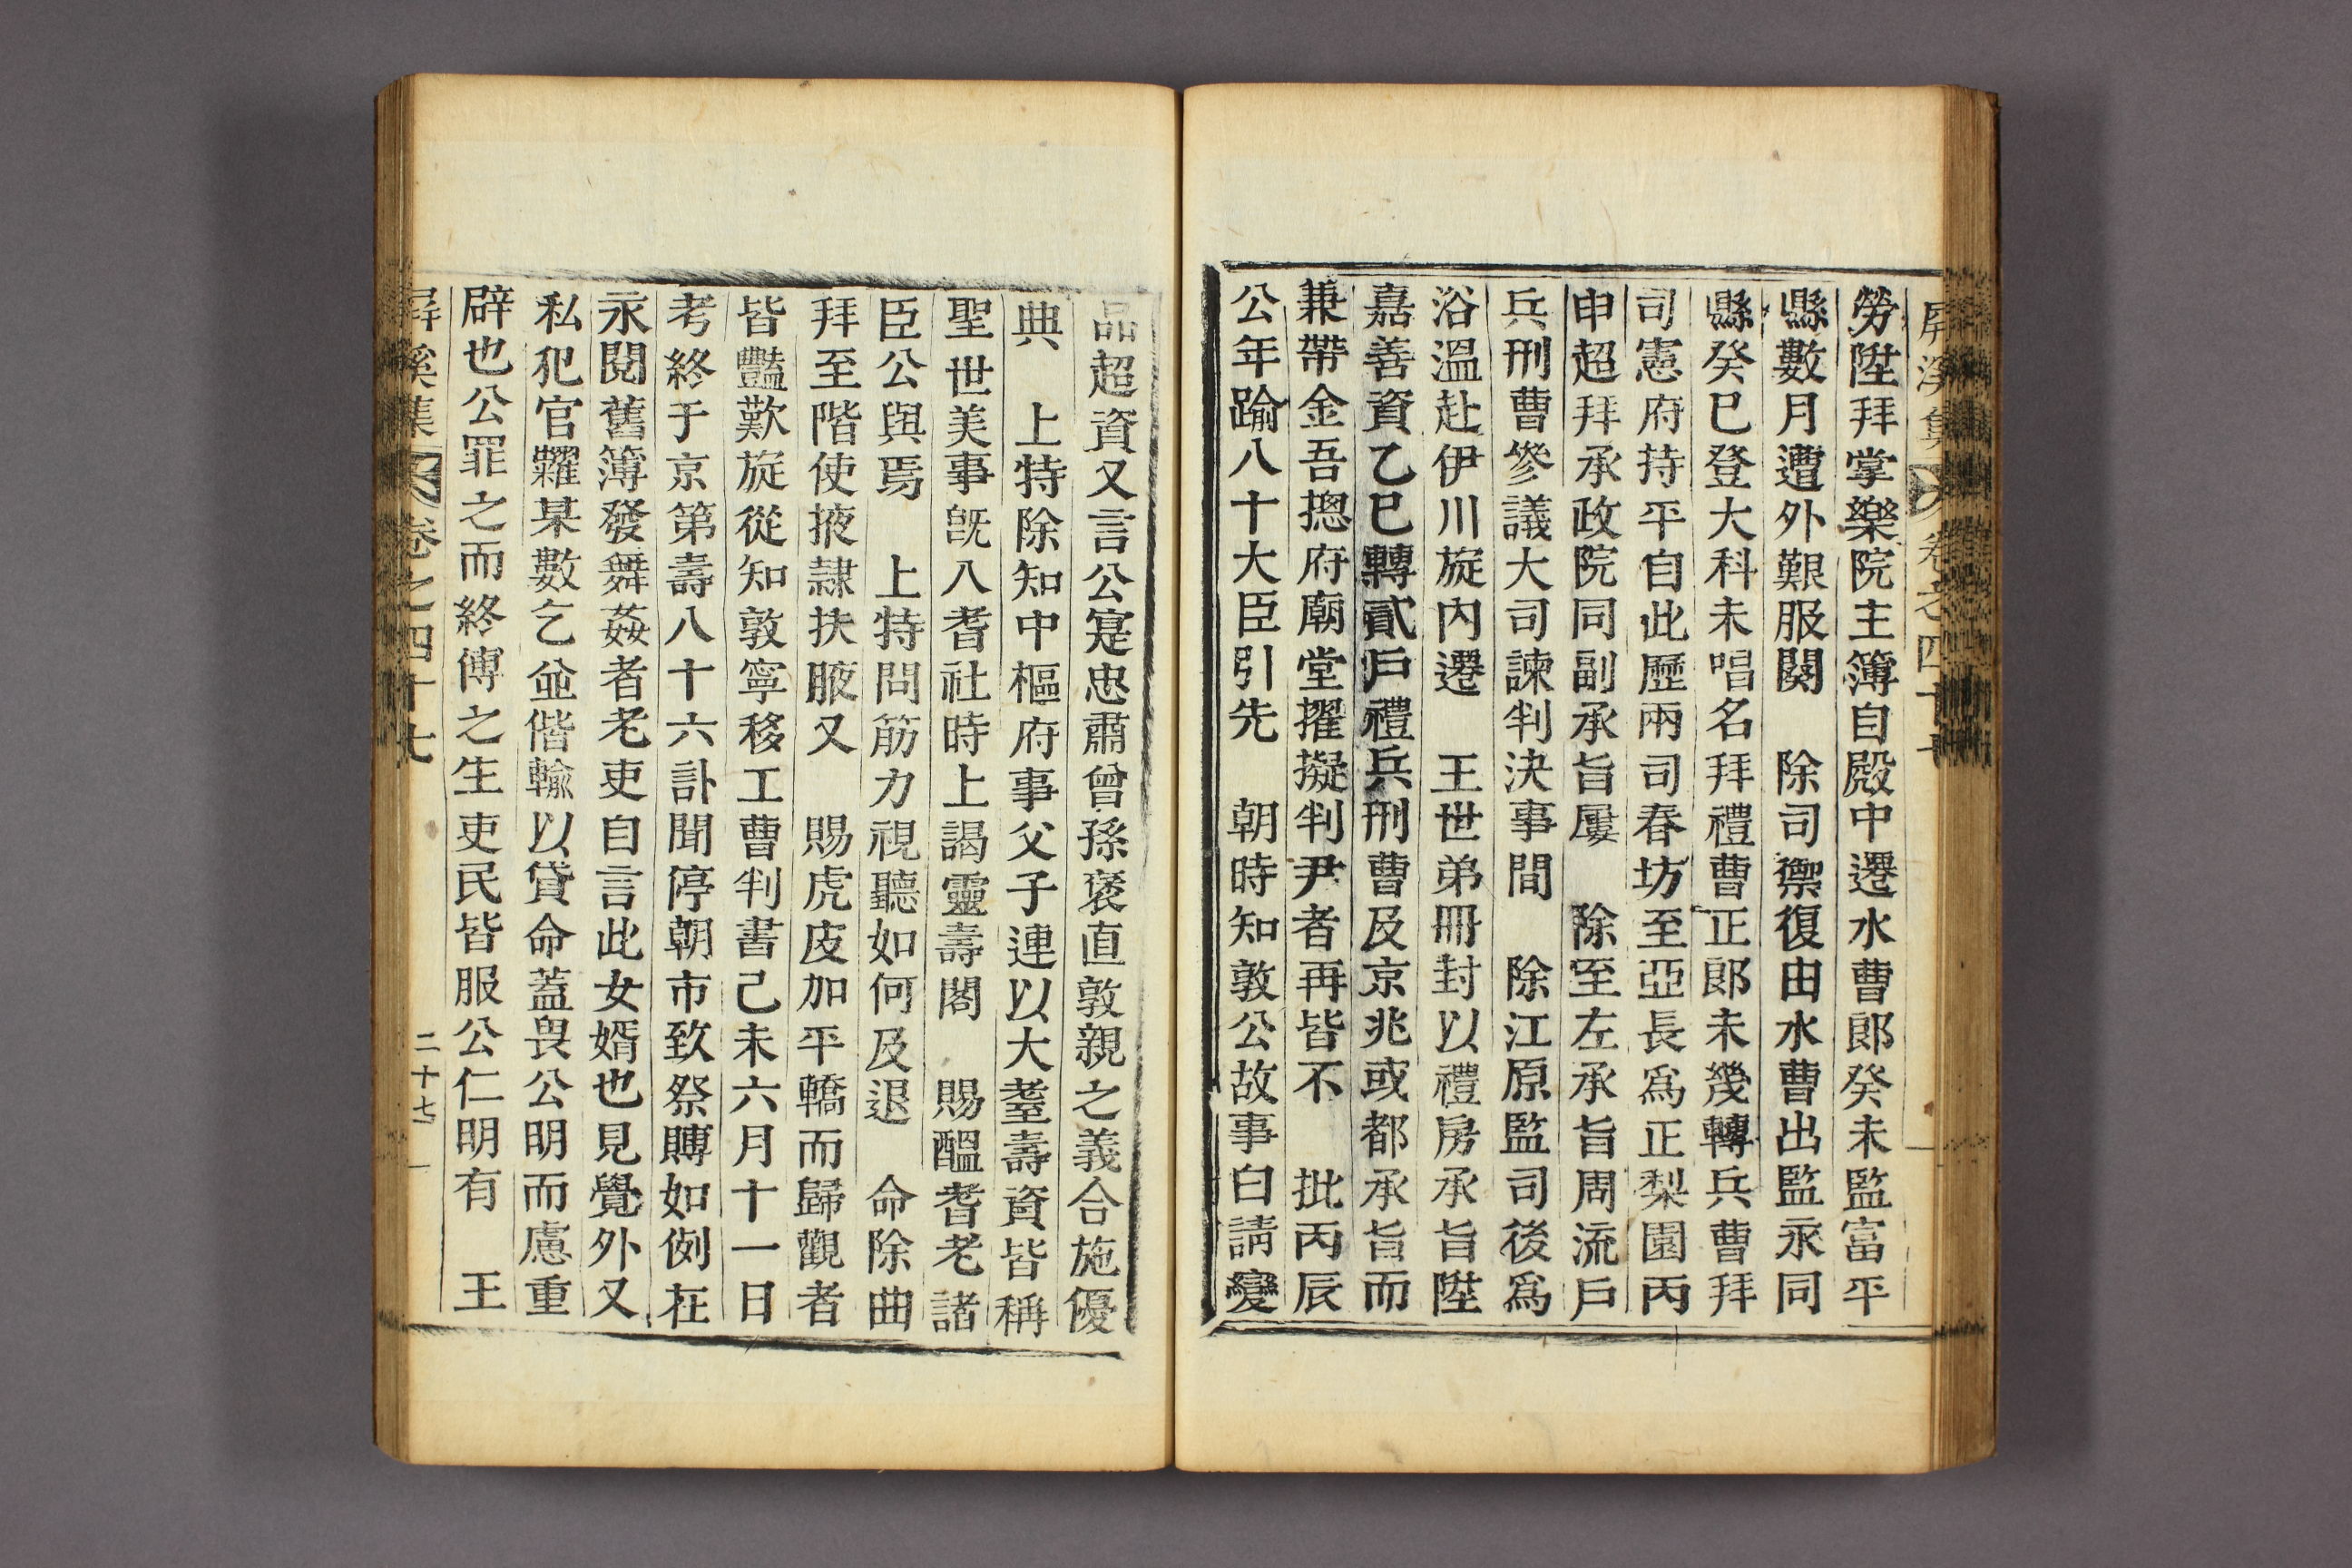 屏溪集 卷之四十七
勞陞拜掌樂院主簿自殿中遷水曹郞癸未監富平
縣數月遭外艱服闋 除司禦復由水曹出監永同
縣癸巳登大科未唱名拜禮曹正郞未幾轉兵曹拜
司憲府持平自此歷兩司春坊至亞長爲正梨園丙
申超拜承政院同副承旨屢 除至左承旨周流戶
兵刑曹參議大司諫判決事間 除江原監司後爲
浴溫赴伊川旋內遷 王世弟冊封以禮房承旨陞
嘉善資乙巳轉貳戶禮兵刑曹及京兆或都承旨而
兼帶金吾摠府廟堂擢擬判尹者再皆不 批丙辰
公年踰八十大臣引先 朝時知敦公故事白請變
品超資又言公寔忠肅曾孫褒直敦親之義合施優
典 上特除知中樞府事父子連以大耋壽資皆稱
聖世美事旣入耆社時上謁靈壽閣 賜醞耆老諸
臣公與焉 上特問筋力視聽如何及退 命除曲
拜至階使掖隷扶腋又 賜虎皮加平轎而歸觀者
皆豔歎旋從知敦寧移工曹判書己未六月十一日
考終于京第壽八十六訃聞停朝市致祭賻如例在
永閱舊簿發舞姦者老吏自言此女婿也見覺外又
私犯官糶某數乞並偕輸以貸命蓋畏公明而慮重
辟也公罪之而終傅之生吏民皆服公仁明有 王
屛溪集 卷之四十七 二十七